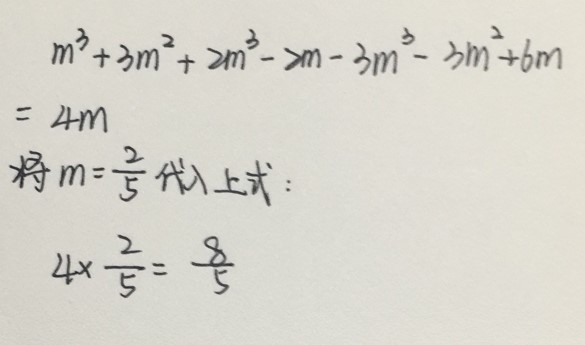 m³+3m²+2m³-2m-3m³-3m²+6m
= 4m
将 m=2/5 代入上式:
4×2/5=8/5